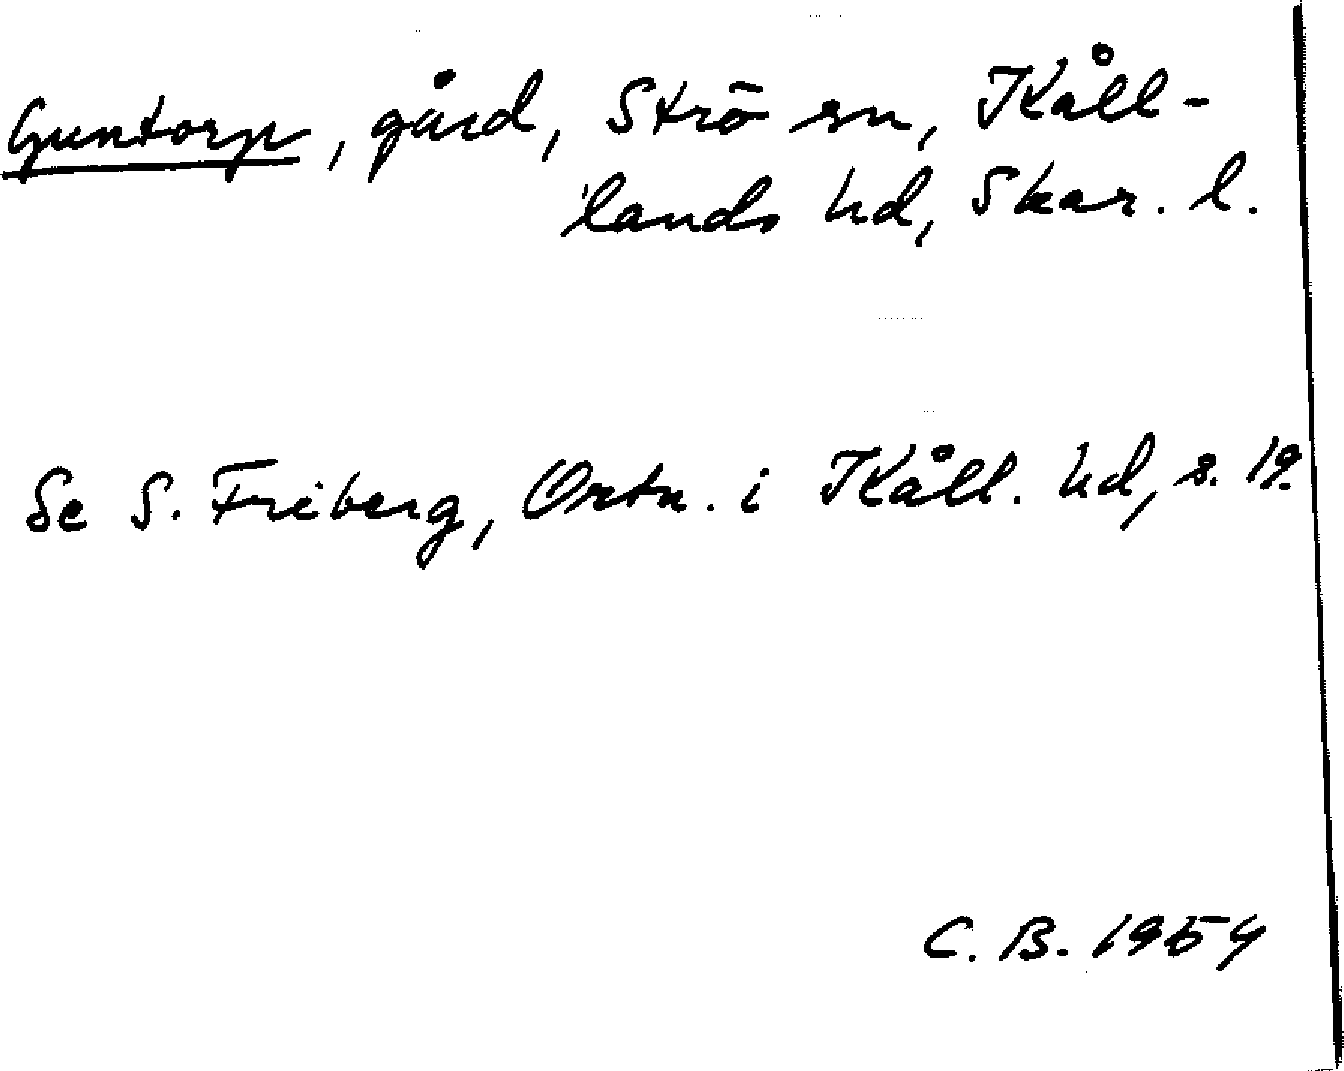 Guntorp, gård, Strö sn, Kåll-
lands hd, Skar. l.
Se S. Friberg, Ortn. i Kåll. hd, s. 19.
C. B. 1954